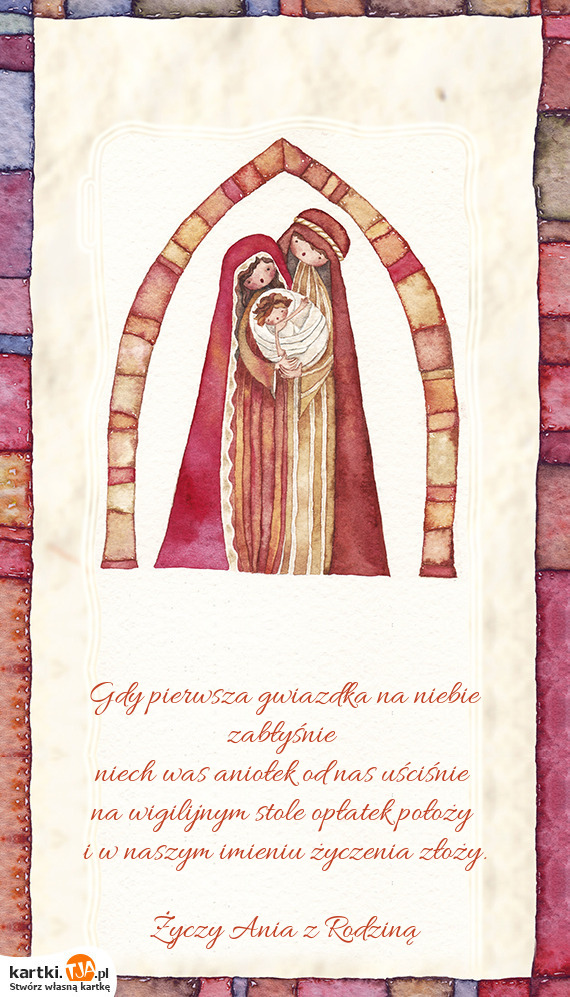 Gdy pierwsza gwiazdka na niebie
zabłyśnie
niech was aniołek od nas uściśnie
na wigilijnym stole opłatek położy
i w naszym imieniu życzenia złoży.
Życzy Ania z Rodziną
kartki.TJA.pl
Stwórz własną kartkę